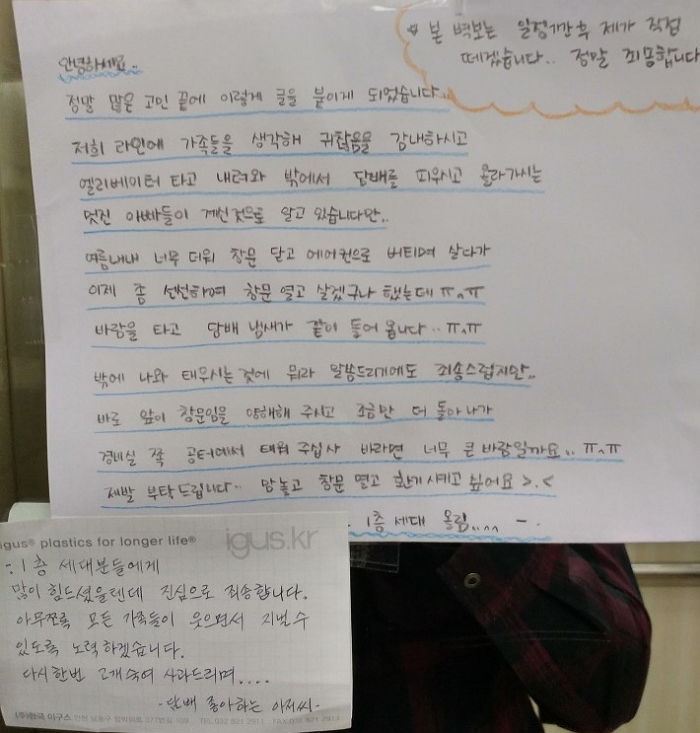 * 본 벽보는 일정기간 후 제가 직접
떼겠습니다.. 정말 죄송합니다
안녕하세요..
정말 많은 고민 끝에 이렇게 글을 붙이게 되었습니다..
저희 라인에 가족들을 생각해 귀찮음을 감내하시고
엘리베이터 타고 내려와 밖에서 담배를 피우시고 올라가시는
멋진 아빠들이 계신것으로 알고 있습니다만..
여름내내 너무 더워 창문 닫고 에어컨으로 버티며 살다가
이제 좀 선선하여 창문 열고 살겠구나 했는데 ㅠ.ㅠ
바람을 타고 담배 냄새가 같이 들어 옵니다..ㅠ.ㅠ
밖에 나와 태우시는 것에 뭐라 말씀드리기에도 죄송스럽지만..
바로 앞이 창문임을 양해해 주시고 조금만 더 돌아 나가
경비실 쪽 공터에서 태워 주십사 바라면 너무 큰 바람일까요.. ㅠ.ㅠ
제발 부탁드립니다.. 맘놓고 창문 열고 환기시키고 싶어요 >.<
1층 세대 올림.... -.
igus® plastics for longer life®
igus.kr
-: 1층 세대분들에게
많이 힘드셨을텐데 진심으로 죄송합니다.
아무쪼록 모든 가족들이 웃으면서 지낼 수
있도록 노력하겠습니다.
다시한번 고개숙여 사과드리며....
-담배 좋아하는 아저씨-
(주)한국 이구스 인천 남동구
TEL.032 821 2911 FAX.032 821 2913